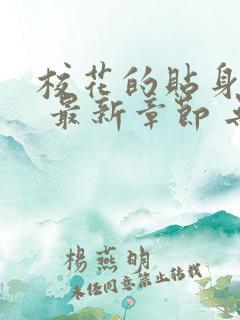 校花的貼身
最新章節
楊燕明
未经同意禁止转载